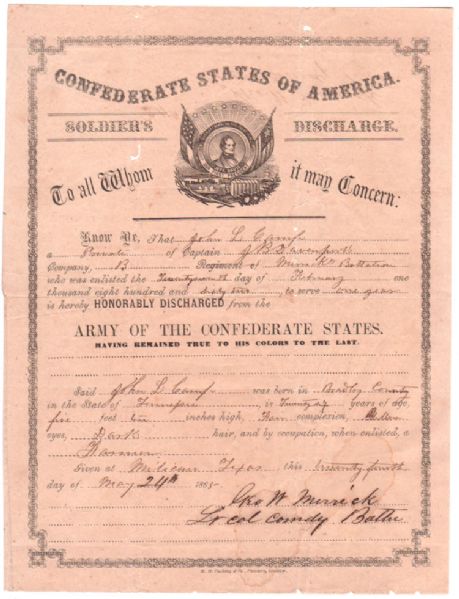 CONFEDERATE STATES OF AMERICA.
SOLDIER'S DISCHARGE.
To all Whom it may Concern:
Know Ye, That John L Camp
a Private of Captain J B Davenport
Company, B Regiment of Battalion
who was enlisted the day of February one
thousand eight hundred and to serve one year
is hereby HONORABLY DISCHARGED from the
ARMY OF THE CONFEDERATE STATES.
HAVING REMAINED TRUE TO HIS COLORS TO THE LAST.
Said John L Camp was born in Bradley County
in the State of is years of age,
five feet inches high, Fair complexion,
eyes, Dark hair, and by occupation, when enlisted, a
Farmer.
Given at Texas this twenty fourth
day of May 24th 1865
Geo W Merrick
Lt col Comdg Battn